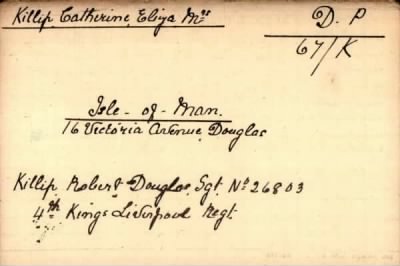 Killip Catherine Eliza Mrs
D. P
67/K
Isle - of - Man.
16 Victoria Avenue Douglas
Killip Robert Douglas Sgt. No 26803
4th Kings Liverpool Regt.